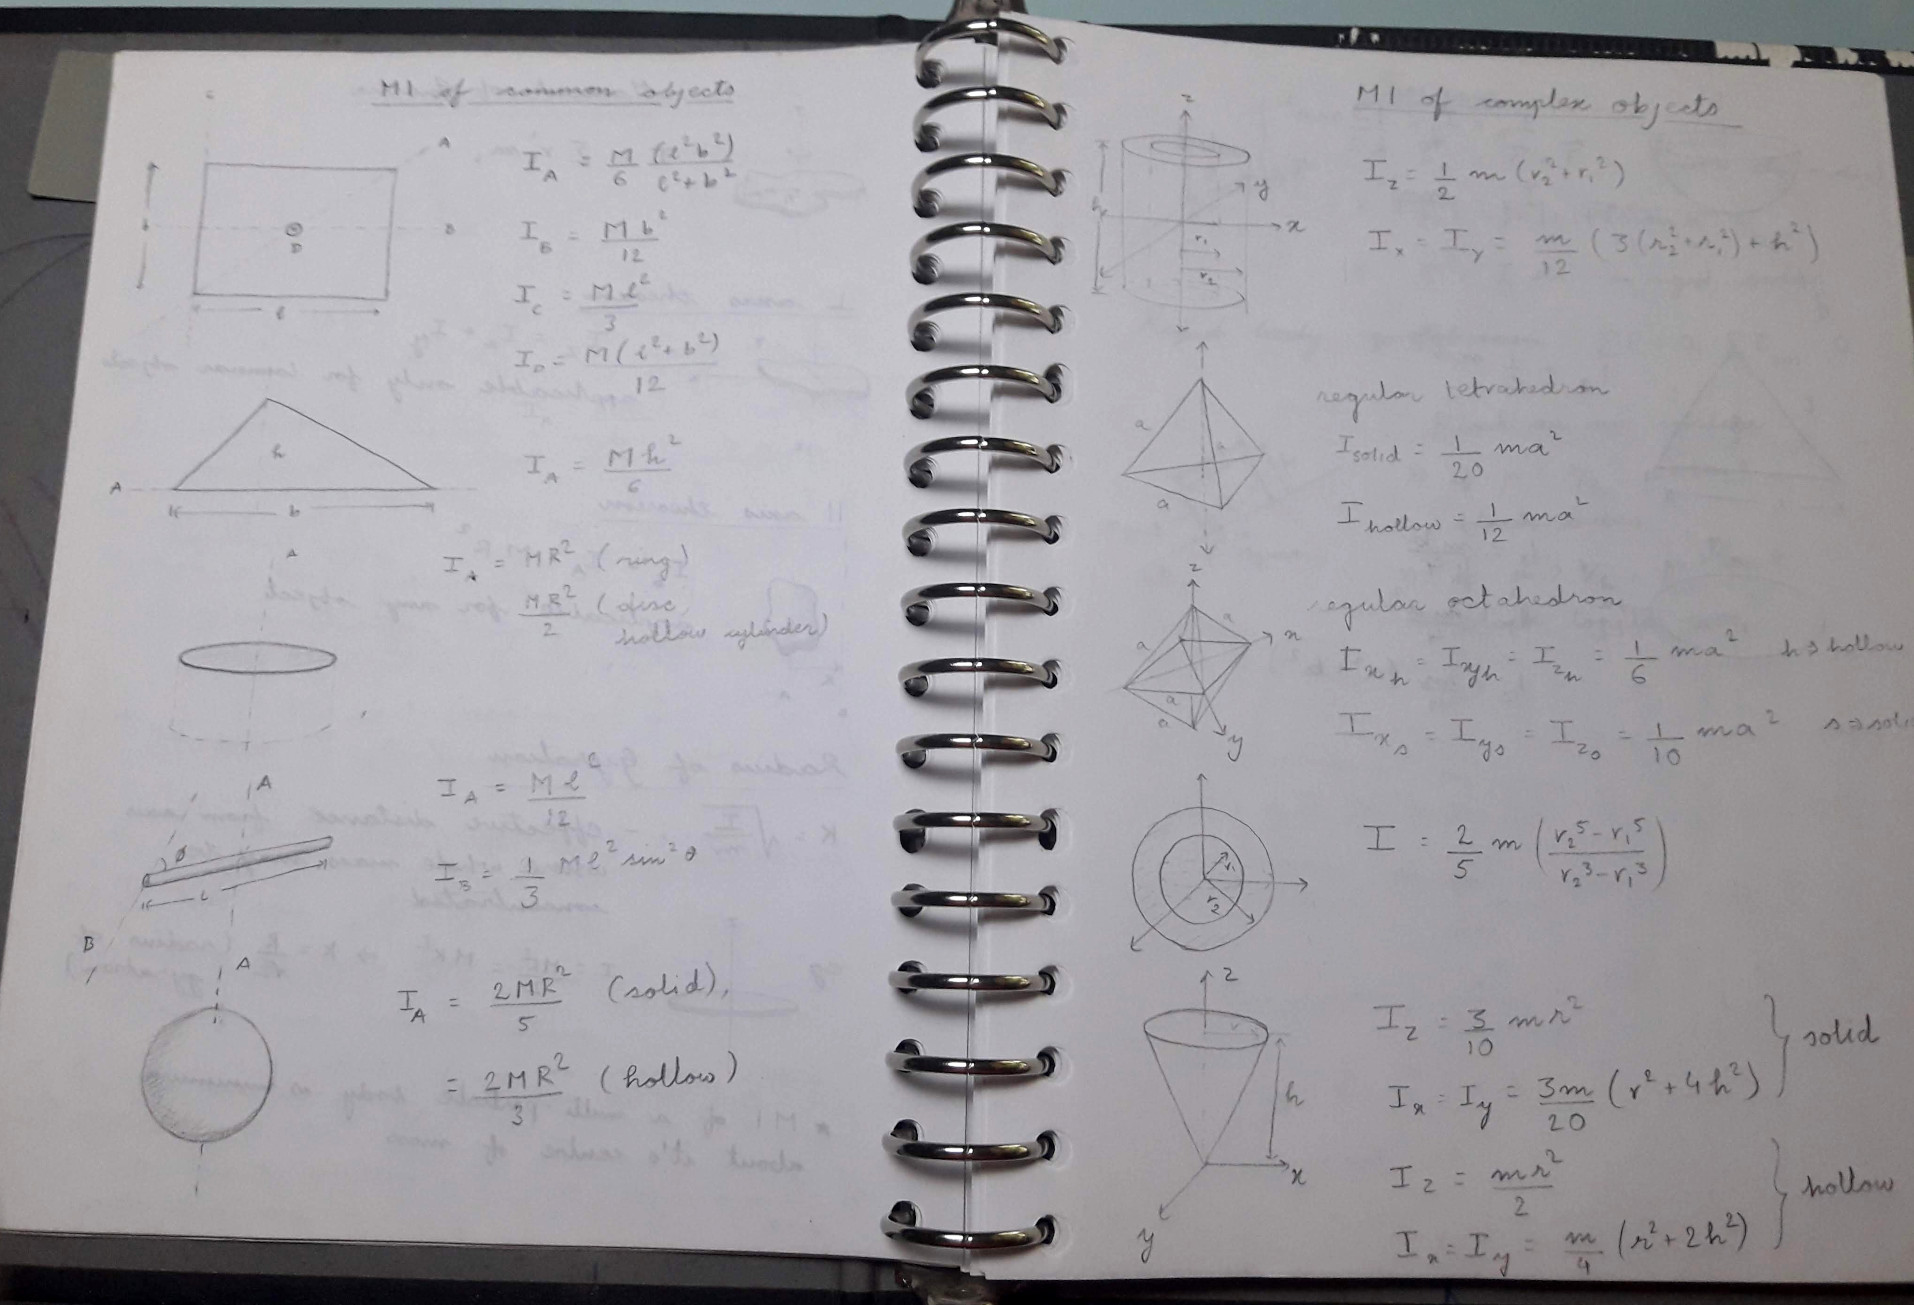 MI of common objects
C
A
B
D
l
I_A = M/6 (l²b²)/(l²+b²)
I_B = Mb²/12
I_C = Ml²/3
I_D = M(l²+b²)/12
h
A
b
I_A = Mh²/6
A
I_A = MR² (ring)
MR²/2 (disc,
hollow cylinder)
A
θ
L
B
I_A = Ml²/12
I_B = 1/3 Ml² sin²θ
A
I_A = 2MR²/5 (solid),
= 2MR²/3 (hollow)
MI of complex objects
z
y
x
h
r₁
r₂
I_z = 1/2 m (r₂²+r₁²)
I_x = I_y = m/12 (3(r₂²+r₁²)+h²)
a
a
a
regular tetrahedron
I solid = 1/20 ma²
I hollow = 1/12 ma²
z
x
y
a
a
a
a
regular octahedron
I_xh = I_xyh = I_zh = 1/6 ma² h⇒hollow
I_xs = I_ys = I_zs = 1/10 ma² s⇒soli
r₁
r₂
I = 2/5 m ((r₂⁵−r₁⁵)/(r₂³−r₁³))
z
r
h
x
y
I_z = 3/10 mr²
I_x = I_y = 3m/20 (r²+4h²)
solid
I_z = mr²/2
I_x = I_y = m/4 (r²+2h²)
hollow